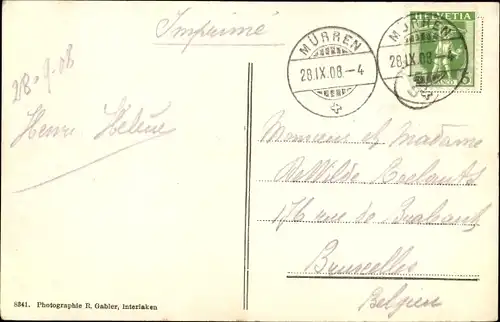 Imprimé
28.9.08
Henri Hélène
MÜRREN
28.IX.08.-4
MÜRREN
28.IX.08.-4
HELVETIA
5
Monsieur et Madame
DeWilde Roelants
176 rue de Brabant
Bruxelles
Belgien
8341. Photographie R. Gabler, Interlaken